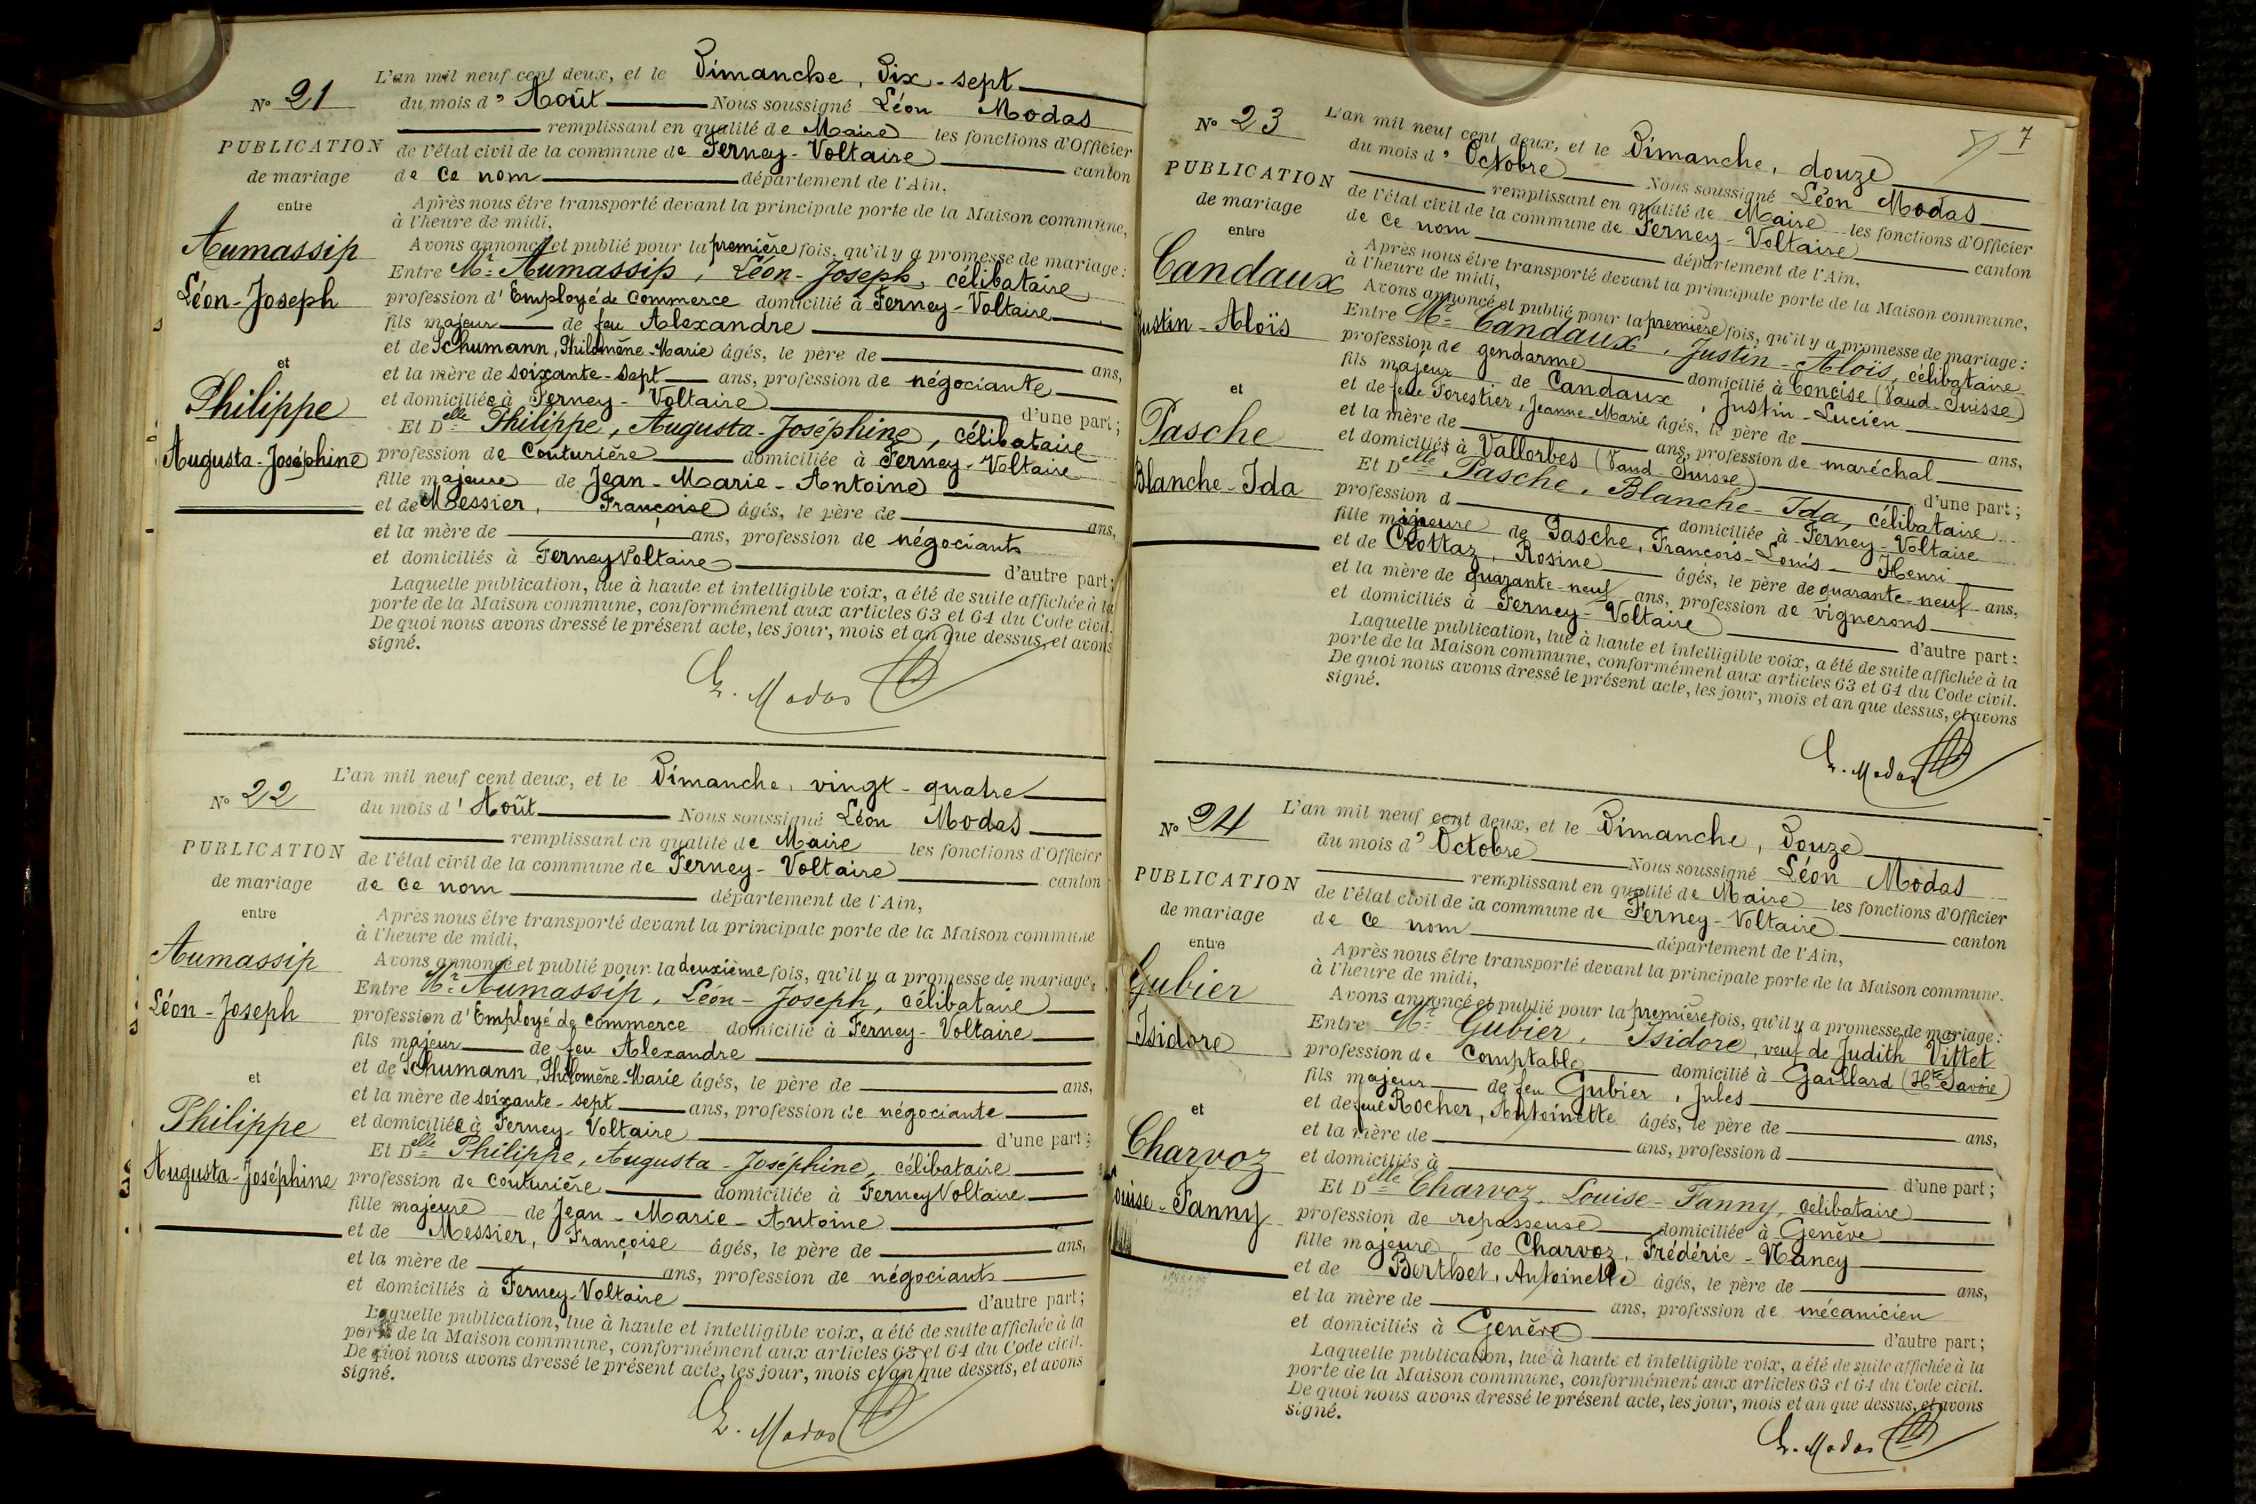 L'an mil neuf cent deux, et le Dimanche, Dix-sept
N° 21 du mois d' Août Nous soussigné Léon Modas
remplissant en qualité de Maire les fonctions d'Officier
PUBLICATION de l'état civil de la commune de Ferney-Voltaire canton
de mariage de Ce nom département de l'Ain,
entre Après nous être transporté devant la principale porte de la Maison commune,
à l'heure de midi,
Avons annoncé et publié pour la première fois, qu'il y a promesse de mariage:
Aumassip Entre Mr. Aumassip, Léon-Joseph, célibataire
Léon-Joseph profession d' Employé de Commerce domicilié à Ferney-Voltaire
fils majeur de feu Alexandre
et de Schumann, Philomène-Marie âgés, le père de ans,
et et la mère de soixante-sept ans, profession de négociante
Philippe et domiciliée à Ferney-Voltaire d'une part;
Et Delle Philippe, Augusta-Joséphine, célibataire
Augusta-Joséphine profession de Couturière domiciliée à Ferney-Voltaire
fille majeure de Jean-Marie-Antoine
et de Messier, Françoise âgés, le père de ans,
et la mère de ans, profession de négociants
et domiciliés à Ferney Voltaire d'autre part;
Laquelle publication, lue à haute et intelligible voix, a été de suite affichée à la
porte de la Maison commune, conformément aux articles 63 et 64 du Code civil.
De quoi nous avons dressé le présent acte, les jour, mois et an que dessus, et avons
signé.
L. Modas
L'an mil neuf cent deux, et le Dimanche, vingt-quatre
N° 22 du mois d' Août Nous soussigné Léon Modas
remplissant en qualité de Maire les fonctions d'Officier
PUBLICATION de l'état civil de la commune de Ferney-Voltaire canton
de mariage de Ce nom département de l'Ain,
entre Après nous être transporté devant la principale porte de la Maison commune
à l'heure de midi,
Aumassip Avons annoncé et publié pour la deuxième fois, qu'il y a promesse de mariage,
Entre Mr. Aumassip, Léon-Joseph, célibataire
Léon-Joseph profession d' Employé de commerce domicilié à Ferney-Voltaire
fils majeur de feu Alexandre
et et de Schumann, Philomène-Marie âgés, le père de ans,
et la mère de soixante-sept ans, profession de négociante
Philippe et domiciliée à Ferney-Voltaire d'une part;
Et Delle Philippe, Augusta-Joséphine, célibataire
Augusta-Joséphine profession de couturière domiciliée à Ferney Voltaire
fille majeure de Jean-Marie-Antoine
et de Messier, Françoise âgés, le père de ans,
et la mère de ans, profession de négociants
et domiciliés à Ferney-Voltaire d'autre part;
Laquelle publication, lue à haute et intelligible voix, a été de suite affichée à la
porte de la Maison commune, conformément aux articles 63 et 64 du Code civil.
De quoi nous avons dressé le présent acte, les jour, mois et an que dessus, et avons
signé.
L. Modas
7
L'an mil neuf cent deux, et le Dimanche, douze
N° 23 du mois d' Octobre Nous soussigné Léon Modas
remplissant en qualité de Maire les fonctions d'Officier
PUBLICATION de l'état civil de la commune de Ferney-Voltaire canton
de mariage de Ce nom département de l'Ain,
entre Après nous être transporté devant la principale porte de la Maison commune,
à l'heure de midi,
Candaux Avons annoncé et publié pour la première fois, qu'il y a promesse de mariage:
Entre Mr. Candaux, Justin-Aloïs, célibataire
Justin-Aloïs profession de gendarme domicilié à Concise (Vaud-Suisse)
fils majeur de Candaux, Justin-Lucien
et et de feue Forestier, Jeanne-Marie âgés, le père de ans,
et la mère de ans, profession de maréchal
Pasche et domiciliés à Vallorbes (Vaud-Suisse) d'une part;
Et Delle Pasche, Blanche-Ida, célibataire
Blanche-Ida profession d domiciliée à Ferney-Voltaire
fille majeure de Pasche, François-Louis-Henri
et de Crottaz, Rosine âgés, le père de quarante-neuf ans,
et la mère de quarante-neuf ans, profession de vignerons
et domiciliés à Ferney-Voltaire d'autre part:
Laquelle publication, lue à haute et intelligible voix, a été de suite affichée à la
porte de la Maison commune, conformément aux articles 63 et 64 du Code civil.
De quoi nous avons dressé le présent acte, les jour, mois et an que dessus, et avons
signé.
L. Modas
L'an mil neuf cent deux, et le Dimanche, Douze
N° 24 du mois d' Octobre Nous soussigné Léon Modas
remplissant en qualité de Maire les fonctions d'Officier
PUBLICATION de l'état civil de la commune de Ferney-Voltaire canton
de mariage de Ce nom département de l'Ain,
entre Après nous être transporté devant la principale porte de la Maison commune.
à l'heure de midi,
Gubier Avons annoncé et publié pour la première fois, qu'il y a promesse de mariage:
Entre Mr. Gubier, Isidore, veuf de Judith Vittet
Isidore profession de Comptable domicilié à Gaillard (Hte Savoie)
fils majeur de feu Gubier, Jules
et et de feue Rocher, Antoinette âgés, le père de ans,
et la mère de ans, profession d
Charvoz et domiciliés à d'une part;
Et Delle Charvoz, Louise-Fanny, célibataire
Louise-Fanny profession de repasseuse domiciliée à Genève
fille majeure de Charvoz, Frédéric-Nancy
et de Berthet, Antoinette âgés, le père de ans,
et la mère de ans, profession de mécanicien
et domiciliés à Genève d'autre part;
Laquelle publication, lue à haute et intelligible voix, a été de suite affichée à la
porte de la Maison commune, conformément aux articles 63 et 64 du Code civil.
De quoi nous avons dressé le présent acte, les jour, mois et an que dessus, et avons
signé.
L. Modas